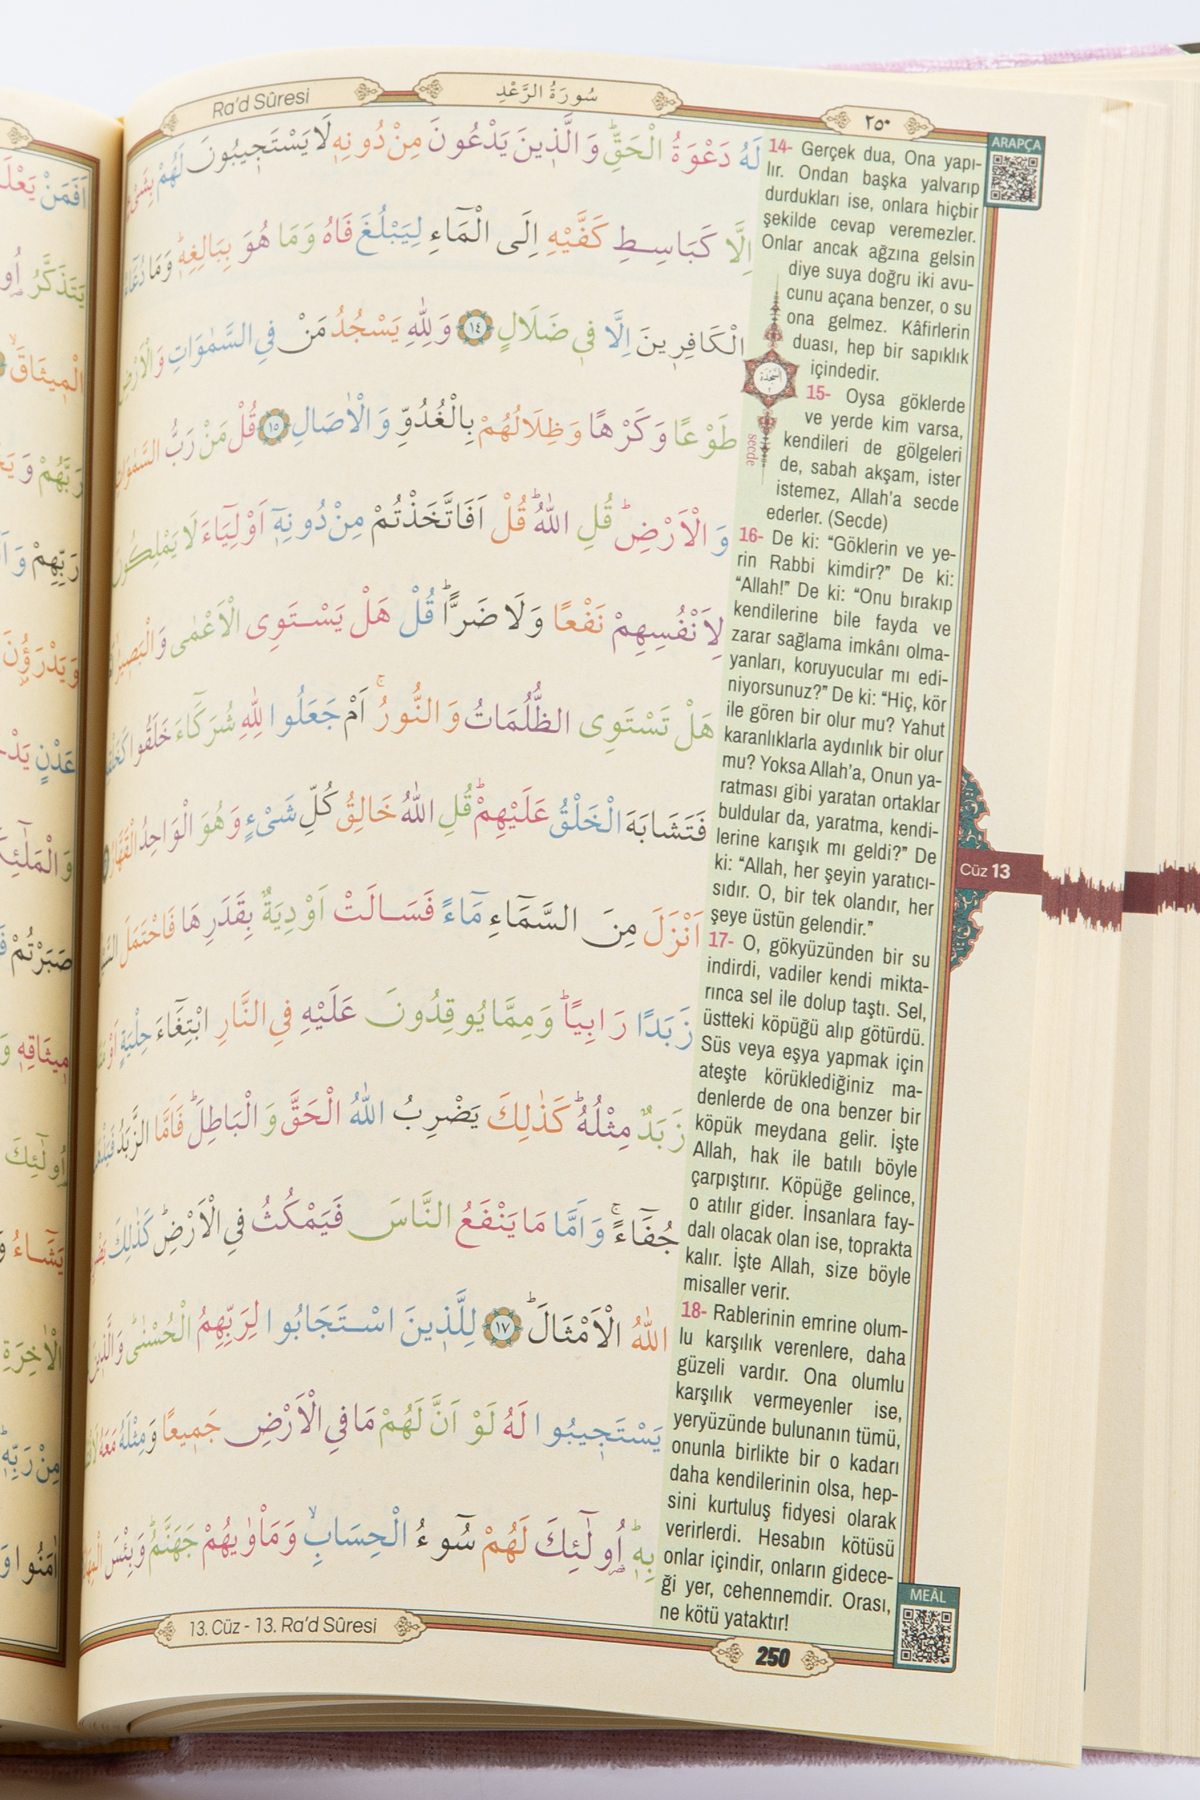 Ra'd Sûresi
سُورَةُ الرَّعْدِ
٢٥٠
ARAPÇA
لَهُ دَعْوَةُ الْحَقِّۜ وَالَّذ۪ينَ يَدْعُونَ مِنْ دُونِه۪ لَا يَسْتَج۪يبُونَ لَهُمْ بِشَيْءٍ
اِلَّا كَبَاسِطِ كَفَّيْهِ اِلَى الْمَٓاءِ لِيَبْلُغَ فَاهُ وَمَا هُوَ بِبَالِغِه۪ۜ وَمَا دُعَٓاءُ
الْكَافِر۪ينَ اِلَّا ف۪ي ضَلَالٍ ﴿١٤﴾ وَلِلّٰهِ يَسْجُدُ مَنْ فِي السَّمٰوَاتِ وَالْاَرْضِ
طَوْعًا وَكَرْهًا وَظِلَالُهُمْ بِالْغُدُوِّ وَالْاٰصَالِ ﴿١٥﴾ قُلْ مَنْ رَبُّ السَّمٰوَاتِ
وَالْاَرْضِۜ قُلِ اللّٰهُۜ قُلْ اَفَاتَّخَذْتُمْ مِنْ دُونِه۪ٓ اَوْلِيَٓاءَ لَا يَمْلِكُونَ
لِاَنْفُسِهِمْ نَفْعًا وَلَا ضَرًّاۜ قُلْ هَلْ يَسْتَوِي الْاَعْمٰى وَالْبَص۪يرُ
هَلْ تَسْتَوِي الظُّلُمَاتُ وَالنُّورُۚ اَمْ جَعَلُوا لِلّٰهِ شُرَكَٓاءَ خَلَقُوا كَخَلْقِه۪
فَتَشَابَهَ الْخَلْقُ عَلَيْهِمْۜ قُلِ اللّٰهُ خَالِقُ كُلِّ شَيْءٍ وَهُوَ الْوَاحِدُ الْقَهَّارُ
اَنْزَلَ مِنَ السَّمَٓاءِ مَٓاءً فَسَالَتْ اَوْدِيَةٌ بِقَدَرِهَا فَاحْتَمَلَ السَّيْلُ
زَبَدًا رَابِيًاۜ وَمِمَّا يُوقِدُونَ عَلَيْهِ فِي النَّارِ ابْتِغَٓاءَ حِلْيَةٍ اَوْ مَتَاعٍ
زَبَدٌ مِثْلُهُۜ كَذٰلِكَ يَضْرِبُ اللّٰهُ الْحَقَّ وَالْبَاطِلَۜ فَاَمَّا الزَّبَدُ فَيَذْهَبُ
جُفَٓاءًۚ وَاَمَّا مَا يَنْفَعُ النَّاسَ فَيَمْكُثُ فِي الْاَرْضِۜ كَذٰلِكَ يَضْرِبُ
اللّٰهُ الْاَمْثَالَۜ ﴿١٧﴾ لِلَّذ۪ينَ اسْتَجَابُوا لِرَبِّهِمُ الْحُسْنٰىۜ وَالَّذ۪ينَ
يَسْتَج۪يبُوا لَهُ لَوْ اَنَّ لَهُمْ مَا فِي الْاَرْضِ جَم۪يعًا وَمِثْلَهُ مَعَهُ
بِه۪ۜ اُو۬لٰٓئِكَ لَهُمْ سُٓوءُ الْحِسَابِۙ وَمَأْوٰيهُمْ جَهَنَّمُۜ وَبِئْسَ الْمِهَادُ
14- Gerçek dua, Ona yapı-
lır. Ondan başka yalvarıp
durdukları ise, onlara hiçbir
şekilde cevap veremezler.
Onlar ancak ağzına gelsin
diye suya doğru iki avu-
cunu açana benzer, o su
ona gelmez. Kâfirlerin
duası, hep bir sapıklık
içindedir.
15- Oysa göklerde
ve yerde kim varsa,
kendileri de gölgeleri
de, sabah akşam, ister
istemez, Allah'a secde
ederler. (Secde)
secde
16- De ki: “Göklerin ve ye-
rin Rabbi kimdir?” De ki:
“Allah!” De ki: “Onu bırakıp
kendilerine bile fayda ve
zarar sağlama imkânı olma-
yanları, koruyucular mı edi-
niyorsunuz?” De ki: “Hiç, kör
ile gören bir olur mu? Yahut
karanlıklarla aydınlık bir olur
mu? Yoksa Allah'a, Onun ya-
ratması gibi yaratan ortaklar
buldular da, yaratma, kendi-
lerine karışık mı geldi?” De
ki: “Allah, her şeyin yaratıcı-
sıdır. O, bir tek olandır, her
şeye üstün gelendir.”
17- O, gökyüzünden bir su
indirdi, vadiler kendi mikta-
rınca sel ile dolup taştı. Sel,
üstteki köpüğü alıp götürdü.
Süs veya eşya yapmak için
ateşte körüklediğiniz ma-
denlerde de ona benzer bir
köpük meydana gelir. İşte
Allah, hak ile batılı böyle
çarpıştırır. Köpüğe gelince,
o atılır gider. İnsanlara fay-
dalı olacak olan ise, toprakta
kalır. İşte Allah, size böyle
misaller verir.
18- Rablerinin emrine olum-
lu karşılık verenlere, daha
güzeli vardır. Ona olumlu
karşılık vermeyenler ise,
yeryüzünde bulunanın tümü,
onunla birlikte bir o kadarı
daha kendilerinin olsa, hep-
sini kurtuluş fidyesi olarak
verirlerdi. Hesabın kötüsü
onlar içindir, onların gidece-
ği yer, cehennemdir. Orası,
ne kötü yataktır!
Cüz 13
MEÂL
13. Cüz - 13. Ra'd Sûresi
250